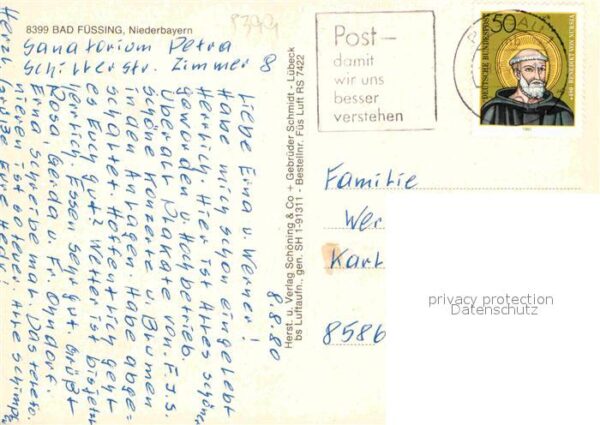 8399 BAD FÜSSING, Niederbayern
8399
Sanatorium Petra
Schillerstr. Zimmer 8
8.8.80
Liebe Erna u. Werner!
Habe mich schon eingelebt
Herrlich. Hier ist Alles schöner
geworden u. Hochbetrieb.
Überall Plakate von F.J.S.
Schöne Konzerte u. Blumen
in den Anlagen. Habe abge=
schaltet Hoffentlich geht
es Euch gut? Wetter ist bis jetzt
herrlich. Essen sehr gut. Grüßt
Rosa, Gerda u. Fr. Ohndorf.
Erna schreibe mal. Das telefo.
nieren ist so teuer. Alle schimpfen
Herzl. Grüße Eure
Herst. u. Verlag Schöning & Co + Gebrüder Schmidt - Lübeck
bs Luftaufn., gen. SH 1-91311 - Bestellnr. Füs Luft RS 7422
Post-
damit
wir uns
besser
verstehen
50
DEUTSCHE BUNDESPOST
BENEDIKT VON NURSIA
1980
Familie
Wer
Karl
8586
privacy protection
Datenschutz